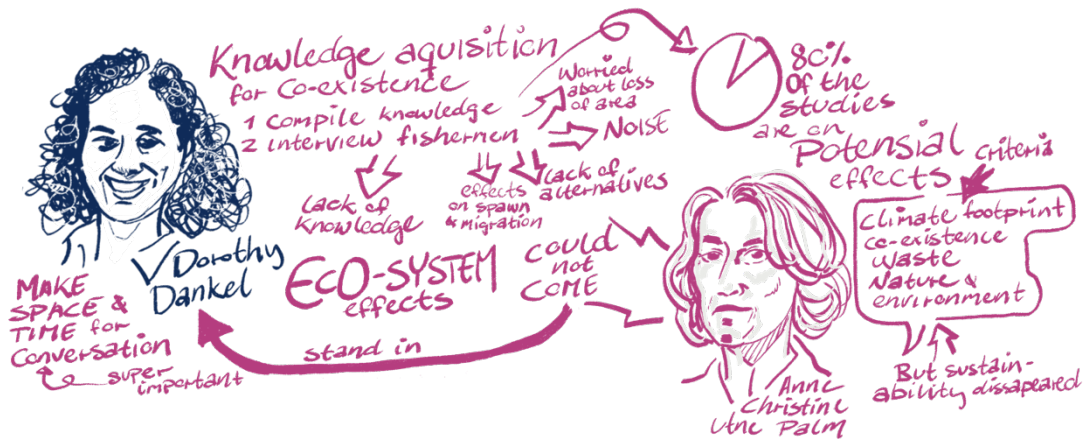 Knowledge aquisition
for Co-existence
1 compile knowledge
2 interview fishermen
Worried
about loss
of area
NOISE
Lack of
knowledge
effects
on spawn
& migration
Lack of
alternatives
80%
Of the
studies
are on
Potensial
effects
criteria
Climate footprint
co-existence
waste
Nature &
environment
But sustain-
ability dissapeared
Dorothy
Dankel
ECO-SYSTEM
effects
could
not
COME
MAKE
SPACE &
TIME for
Conversation
super
important
stand in
Anne
Christine
Utne Palm